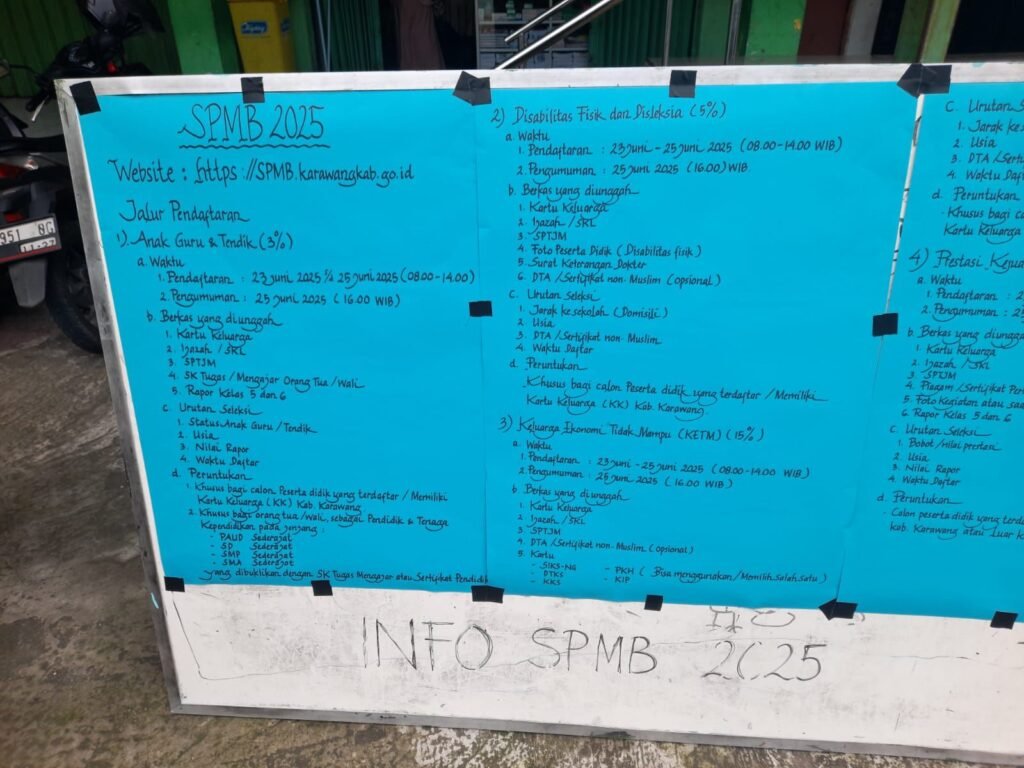 SPMB 2025
Website : https://SPMB.karawangkab.go.id
Jalur Pendaftaran
1). Anak Guru & Tendik (3%)
a. Waktu
1. Pendaftaran : 23 Juni 2025 s/d 25 Juni 2025 (08.00-14.00)
2. Pengumuman : 25 Juni 2025 (16.00 WIB)
b. Berkas yang diunggah
1. Kartu Keluarga
2. Ijazah / SKL
3. SPTJM
4. SK Tugas / Mengajar Orang Tua / Wali
5. Rapor Kelas 5 dan 6
c. Urutan Seleksi
1. Status Anak Guru / Tendik
2. Usia
3. Nilai Rapor
4. Waktu Daftar
d. Peruntukan
1. Khusus bagi calon Peserta didik yang terdaftar / Memiliki
Kartu Keluarga (KK) Kab. Karawang
2. Khusus bagi orang tua / Wali, sebagai Pendidik & Tenaga
Kependidikan pada jenjang :
- PAUD Sederajat
- SD Sederajat
- SMP Sederajat
- SMA Sederajat
yang dibuktikan dengan SK Tugas Mengajar atau Sertifikat Pendidik
2) Disabilitas Fisik dan Disleksia (5%)
a. Waktu
1. Pendaftaran : 23 Juni - 25 Juni 2025 (08.00-14.00 WIB)
2. Pengumuman : 25 Juni 2025 (16.00) WIB
b. Berkas yang diunggah
1. Kartu Keluarga
2. Ijazah / SKL
3. SPTJM
4. Foto Peserta Didik (Disabilitas fisik)
5. Surat Keterangan Dokter
6. DTA / Sertifikat non-Muslim (opsional)
c. Urutan Seleksi
1. Jarak ke sekolah (Domisili)
2. Usia
3. DTA / Sertifikat non-Muslim
4. Waktu Daftar
d. Peruntukan
Khusus bagi calon Peserta didik yang terdaftar / Memiliki
Kartu Keluarga (KK) Kab. Karawang.
3) Keluarga Ekonomi Tidak Mampu (KETM) (15%)
a. Waktu
1. Pendaftaran : 23 Juni - 25 Juni 2025 (08.00-14.00 WIB)
2. Pengumuman : 25 Juni 2025 (16.00 WIB)
b. Berkas yang diunggah
1. Kartu Keluarga
2. Ijazah / SKL
3. SPTJM
4. DTA / Sertifikat non-Muslim (opsional)
5. Kartu
- SIKS-NG - PKH (Bisa menggunakan / Memilih Salah Satu)
- DTKS - KIP
- KKS
c. Urutan S
1. Jarak ke s
2. Usia
3. DTA / Serti
4. Waktu Daf
d. Peruntukan
- Khusus bagi ca
Kartu Keluarga
4) Prestasi Keju
a. Waktu
1. Pendaftaran : 2
2. Pengumuman : 25
b. Berkas yang diungga
1. Kartu Keluarga
2. Ijazah / SKL
3. SPTJM
4. Piagam / Sertifikat Per
5. Foto Kegiatan atau saa
6. Rapor Kelas 5 dan 6
c. Urutan Seleksi
1. Bobot / nilai prestasi
2. Usia
3. Nilai Rapor
4. Waktu Daftar
d. Peruntukan
- Calon peserta didik yang terda
kab. Karawang atau Luar k
INFO SPMB 2025